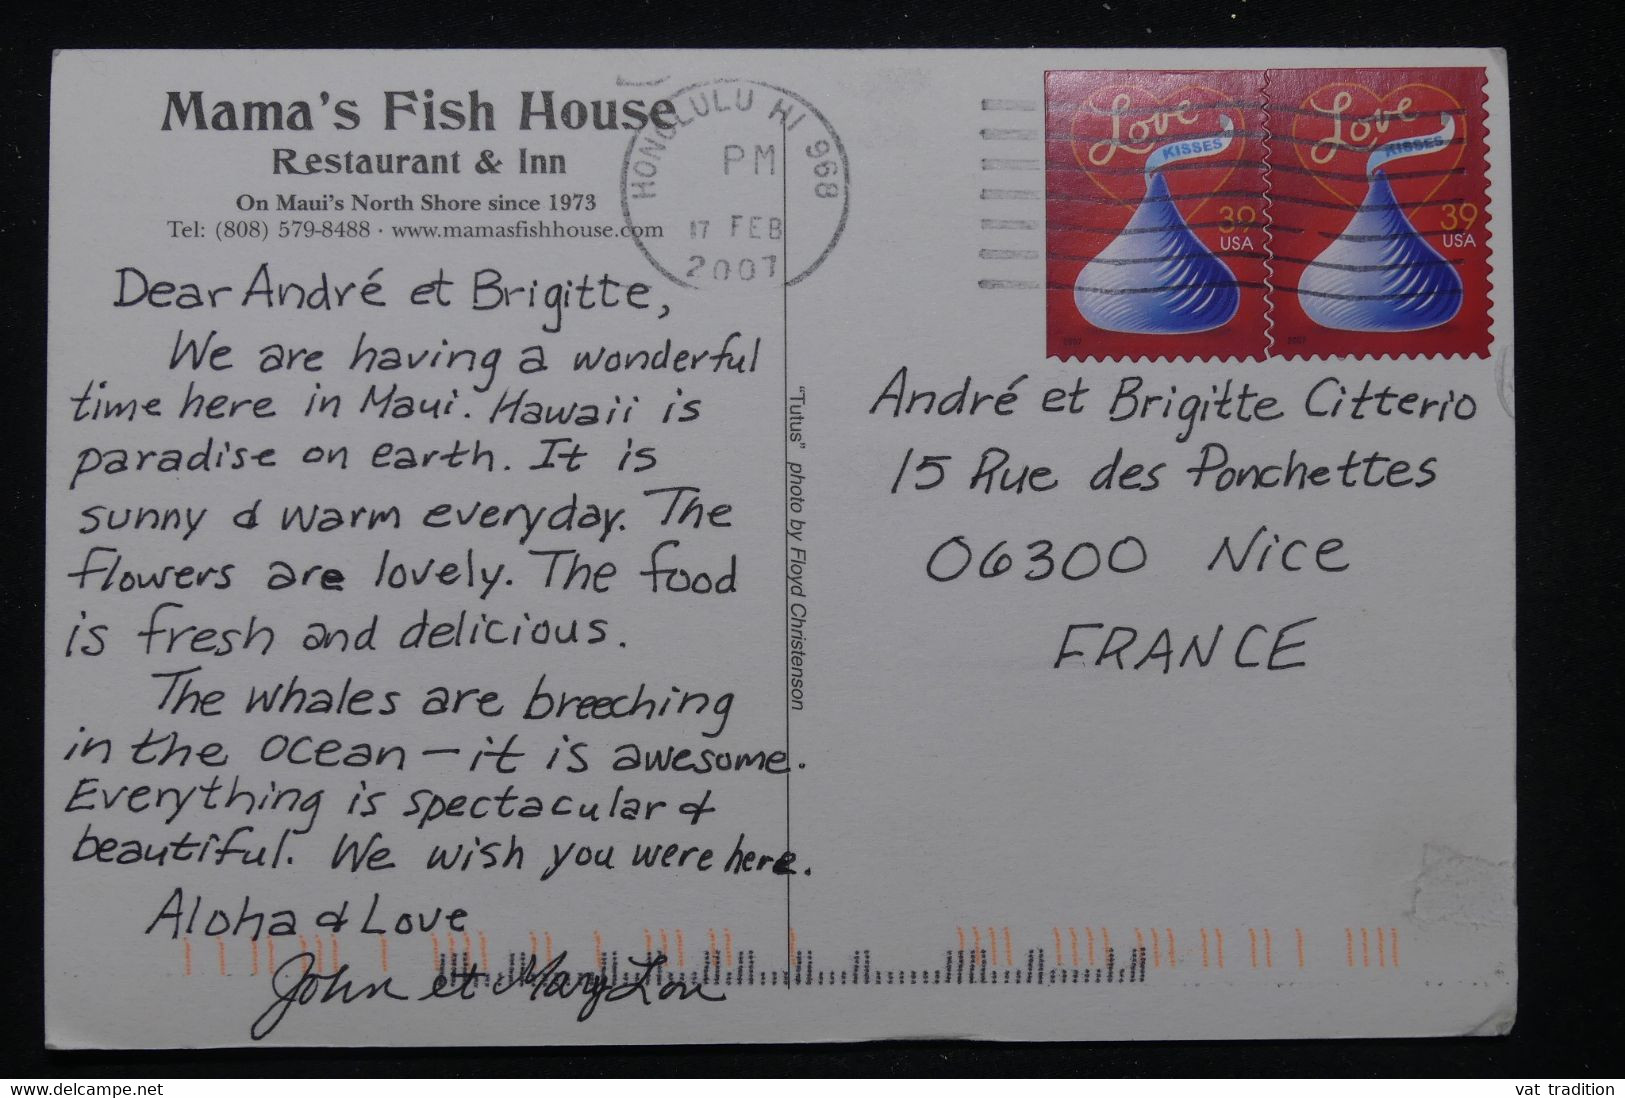 Mama's Fish House
Restaurant & Inn
On Maui's North Shore since 1973
Tel: (808) 579-8488 · www.mamasfishhouse.com
HONOLULU HI 968
PM
17 FEB
2007
Love
KISSES
39
USA
2007
Love
KISSES
39
USA
2007
Dear André et Brigitte,
We are having a wonderful
time here in Maui. Hawaii is
paradise on earth. It is
sunny & warm everyday. The
flowers are lovely. The food
is fresh and delicious.
The whales are breeching
in the ocean — it is awesome.
Everything is spectacular &
beautiful. We wish you were here.
Aloha & Love
John et Mary Lou
"Tutus" photo by Floyd Christenson
André et Brigitte Citterio
15 Rue des Ponchettes
06300 Nice
FRANCE
delcampe.net
vat_tradition